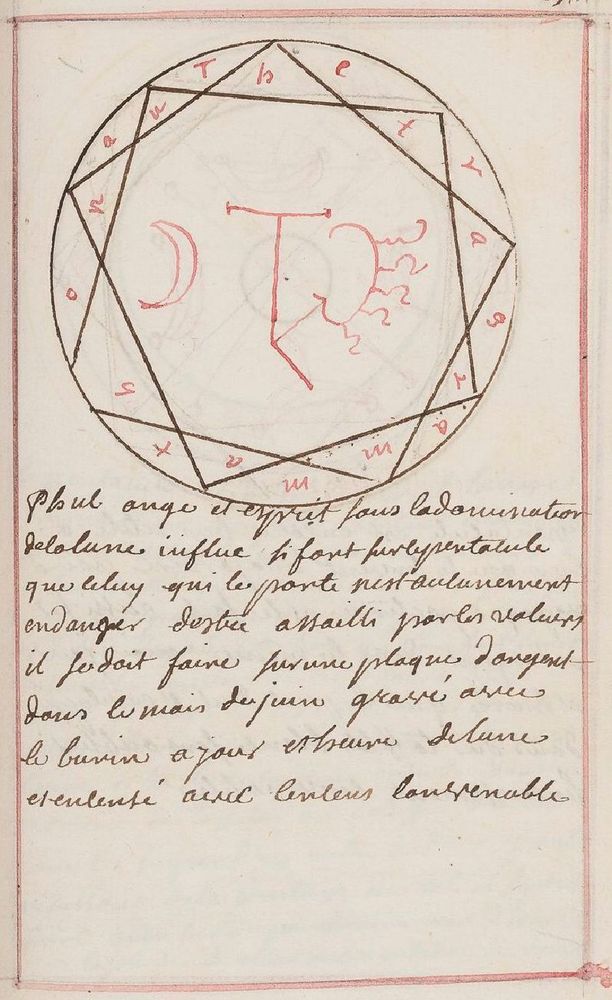 Phul ange et esprit sous ladomination
delalune influe si fort surlepentacule
que celuy qui le porte nest aucunement
endanger destre assailli par les voleurs
il se doit faire sur une plaque dargent
dans le mois de juin gravé avec
le burin a jour et heure de lune
et encensé avec lencens convenable